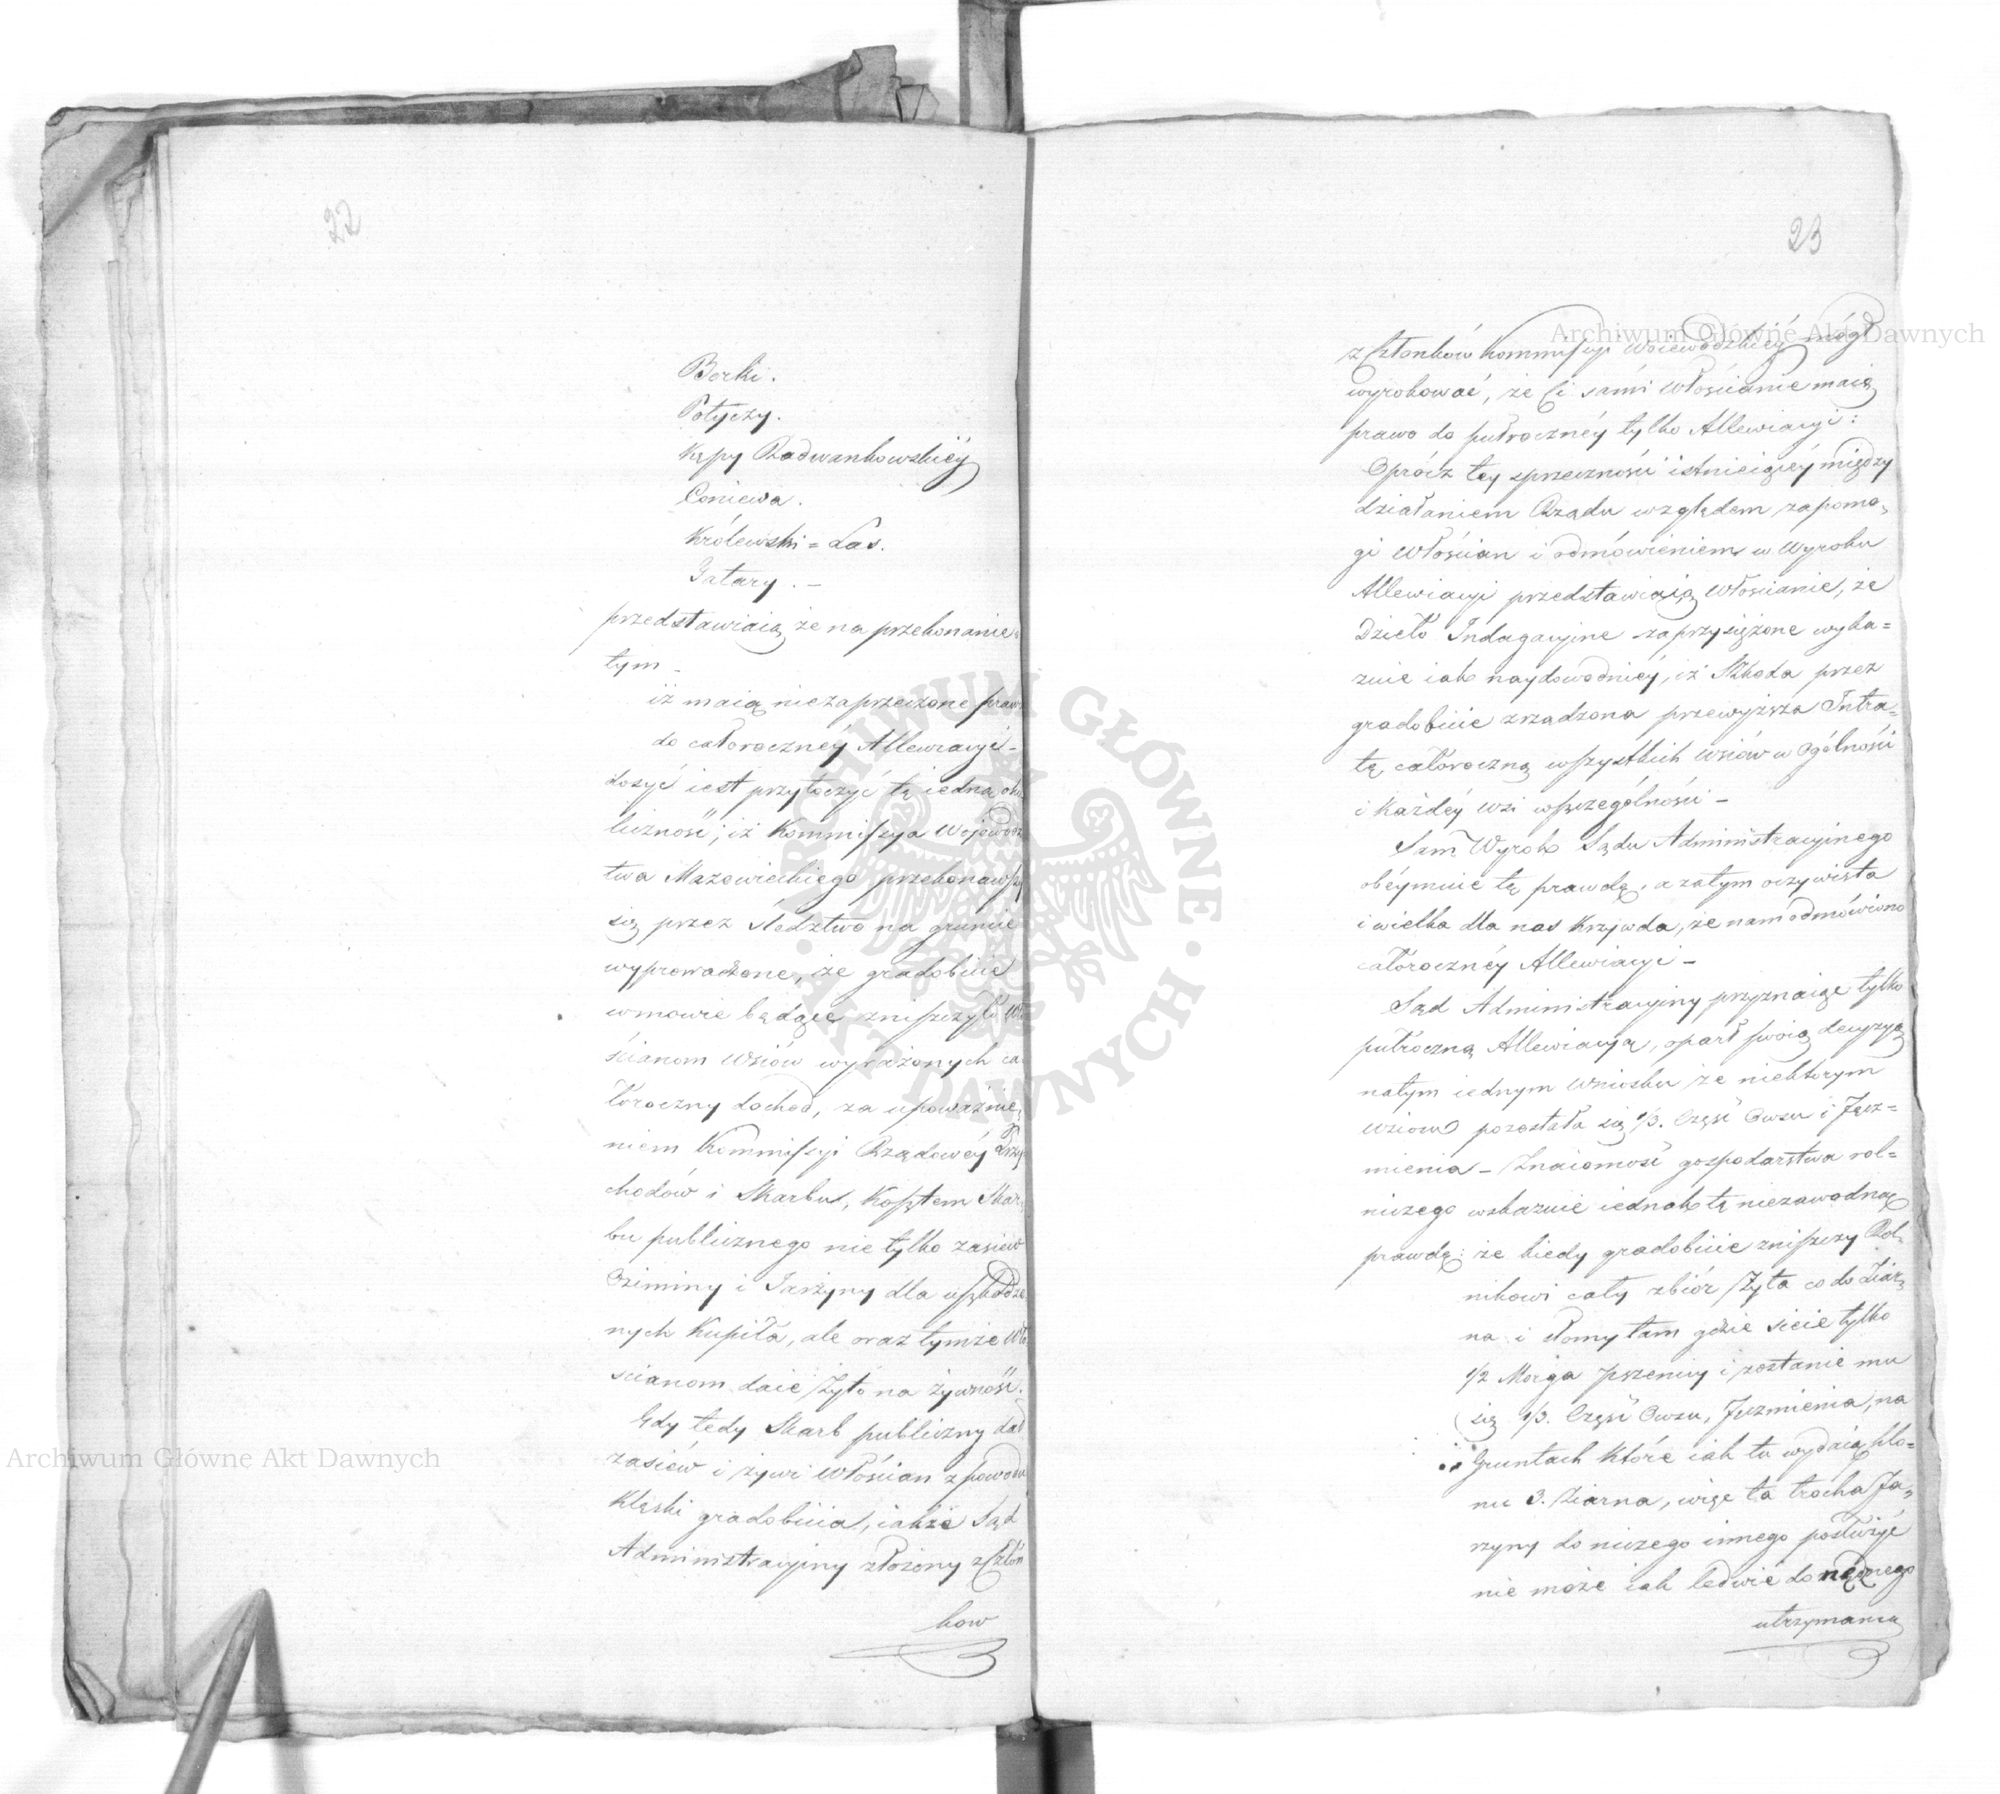 22
Borki.
Potyczy.
Kępy Radwankowskiéy
Coniewa.
Królewski=Las.
Tatary. —
przedstawiaią że na przekonanie
tym —
iż maią niezaprzeczone prawo
do całorocznéy Allewiacyi —
dosyć iest przytoczyć tę iedną oko
liczność; iż Kommissya Wojewódz
twa Mazowieckiego przekonawszy
się przez śledztwo na gruncie
wyprowadzone, że gradobicie
w mowie będące zniszczyło Wło
ścianom wsiów wyrażonych ca
łoroczny dochód, za upoważnie
niem Kommissyi Rządowéy Przy
chodów i Skarbu, Kosztem Skar
bu publicznego nie tylko zasiew
Oziminy i Jarzyny dla uszkodzo
nych Kupiła, ale oraz tymże Wło
scianom daie Żyto na żywność.
Gdy tedy Skarb publiczny dał
zasiew i żywi Włościan z powodu
Klęski gradobicia, iakże Sąd
Administracyiny złożony z Człon
kow
23
z Członków Kommissyi Woiewódzkiéy mógł
wyrokować, że Ci sami Włościanie maią
prawo do pułrocznéy tylko Allewiacyi:
Oprócz téy sprzeczności istnieiącéy między
działaniem Rządu względem zapomo
gi Włościan i odmówieniem w Wyroku
Allewiacyi przedstawiaią Włościanie, że
Dzieło Indagacyine zaprzysiężone wyka=
zuie iak naydowodniéy, iż Szkoda przez
gradobicie zrządzona przewyższa Intra=
tę całoroczną wszystkich wsiów w Ogólności
i każdéy wsi w szczególności —
Sam Wyrok Sądu Administracyinego
obéymuie tę prawdę, a zatym oczywista
i wielka dla nas Krzywda, że nam odmówiono
całorocznéy Allewiacyi —
Sąd Administracyiny przyznaiąc tylko
pułroczną Allewiacyą, oparł swoią decyzyą
na tym iednym wniosku że niektórym
wsiom pozostała się 1/3. Część Owsu i Jęcz=
mienia — Znaiomość gospodarstwa rol=
niczego wskazuie iednak tę niezawodną
prawdę: że kiedy gradobicie zniszczy Rol=
nikowi cały zbiór Żyta co do Ziar
na i słomy tam gdzie sieie tylko
1/2 Morga pszenicy i zostanie mu
się 1/3. Część Owsu, Jęczmienia, na
Gruntach które iak tu wydaią pło=
nu 3. Ziarna, więc ta trocha Ja=
rzyny do niczego innego posłużyć
nie może iak ledwie do nędznego
utrzymania
Archiwum Główne Akt Dawnych
Archiwum Główne Akt Dawnych
ARCHIWUM GŁÓWNE · AKT DAWNYCH ·